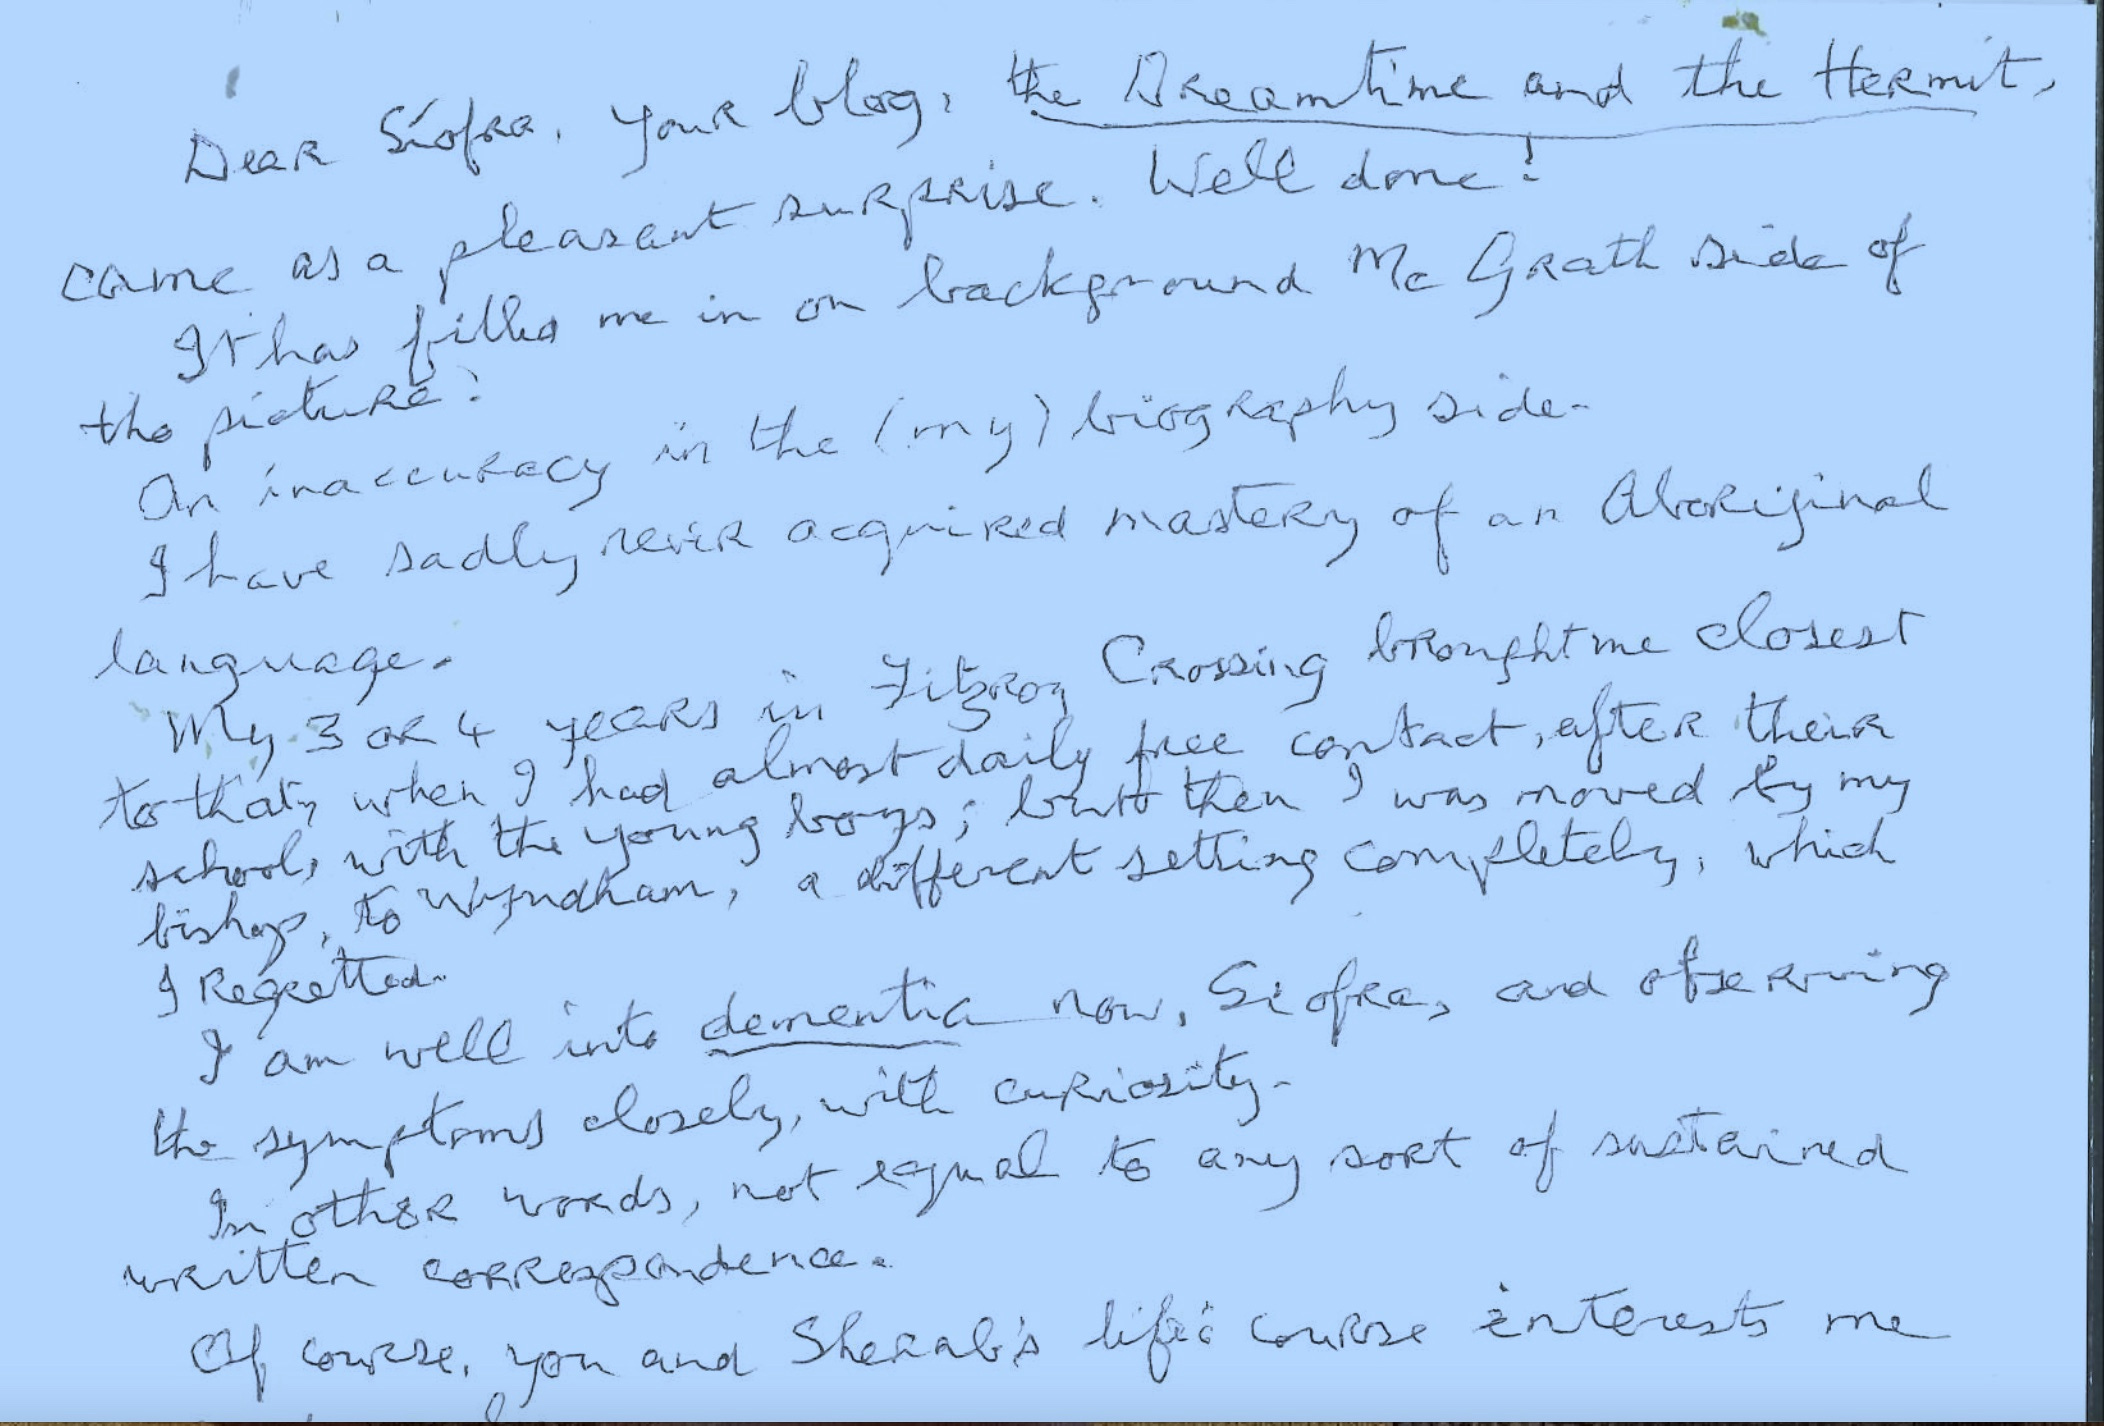 Dear Síofra, Your blog, the Dreamtime and the Hermit,
came as a pleasant surprise. Well done!
It has filled me in on background Mc Grath side of
the picture!
An inaccuracy in the (my) biography side.
I have sadly never acquired mastery of an Aboriginal
language.
My 3 or 4 years in Fitzroy Crossing brought me closest
to that, when I had almost daily free contact, after their
school, with the young boys; but then I was moved by my
bishop, to Wyndham, a different setting completely, which
I Regretted.
I am well into dementia now, Síofra, and observing
the symptoms closely, with curiosity.
In other words, not equal to any sort of sustained
written correspondence.
Of course, you and Sherab's life's course interests me